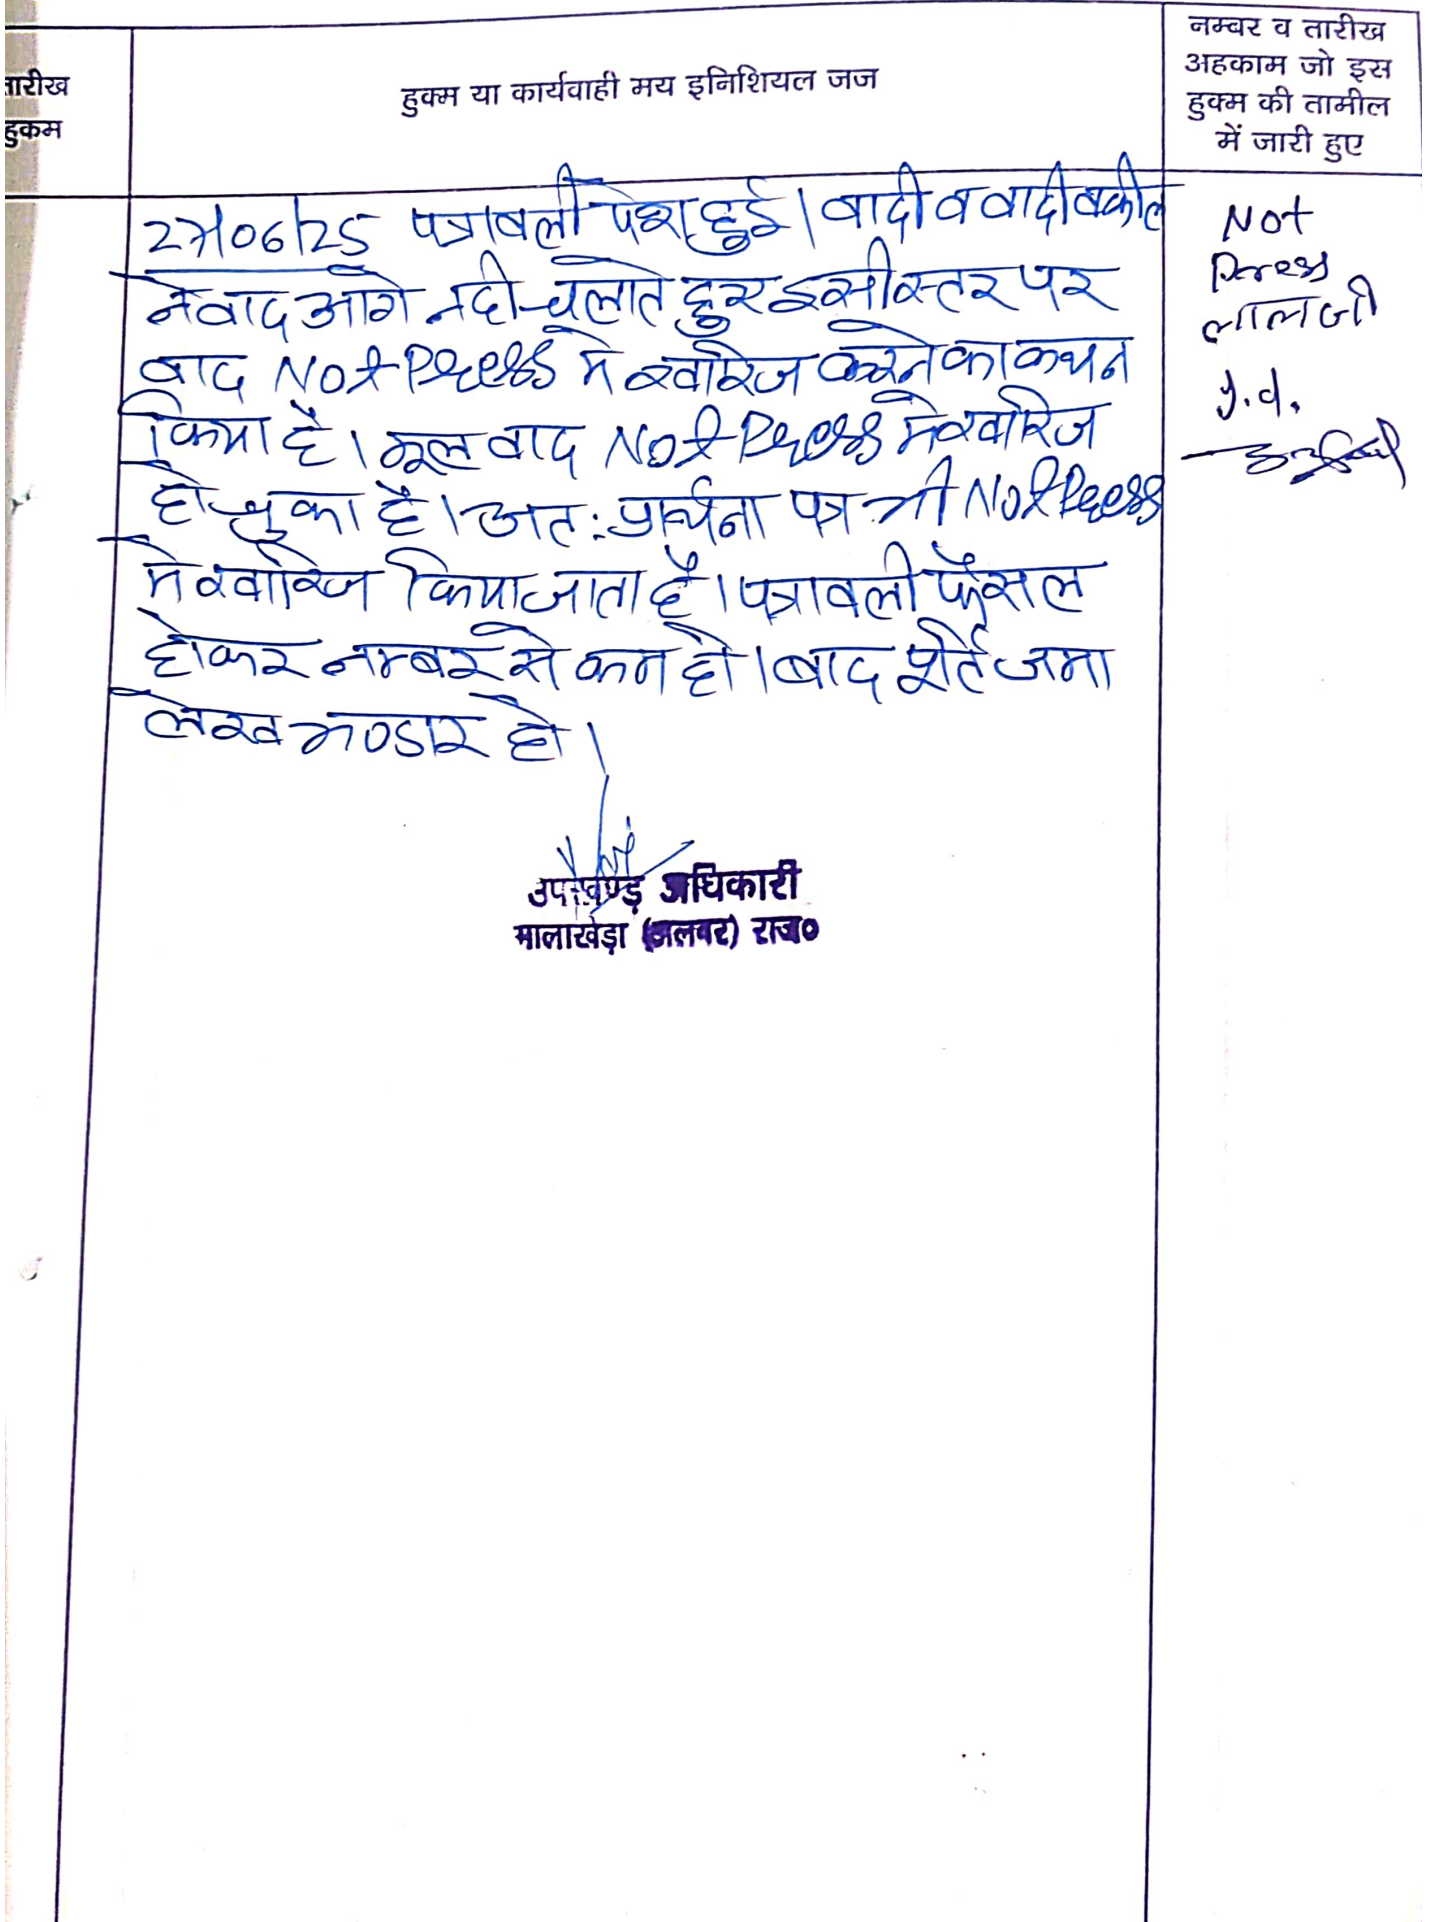 तारीख
हुकम
हुक्म या कार्यवाही मय इनिशियल जज
नम्बर व तारीख
अहकाम जो इस
हुक्म की तामील
में जारी हुए
27/06/25 पत्रावली पेश हुई। वादी व वादी वकील
ने वाद आगे नही चलाते हुए इसी स्तर पर
वाद Not Press मे खारिज करने का कथन
किया है। मूल वाद Not Press मे खारिज
हो चुका है। अत: प्रार्थना पत्र भी Not Press
मे खारिज किया जाता है। पत्रावली फैसल
होकर नम्बर से कम हो। बाद पूर्ति जमा
लेख भण्डार हो।
Not
Press
लालजी
उपखण्ड अधिकारी
मालाखेड़ा (अलवर) राज०